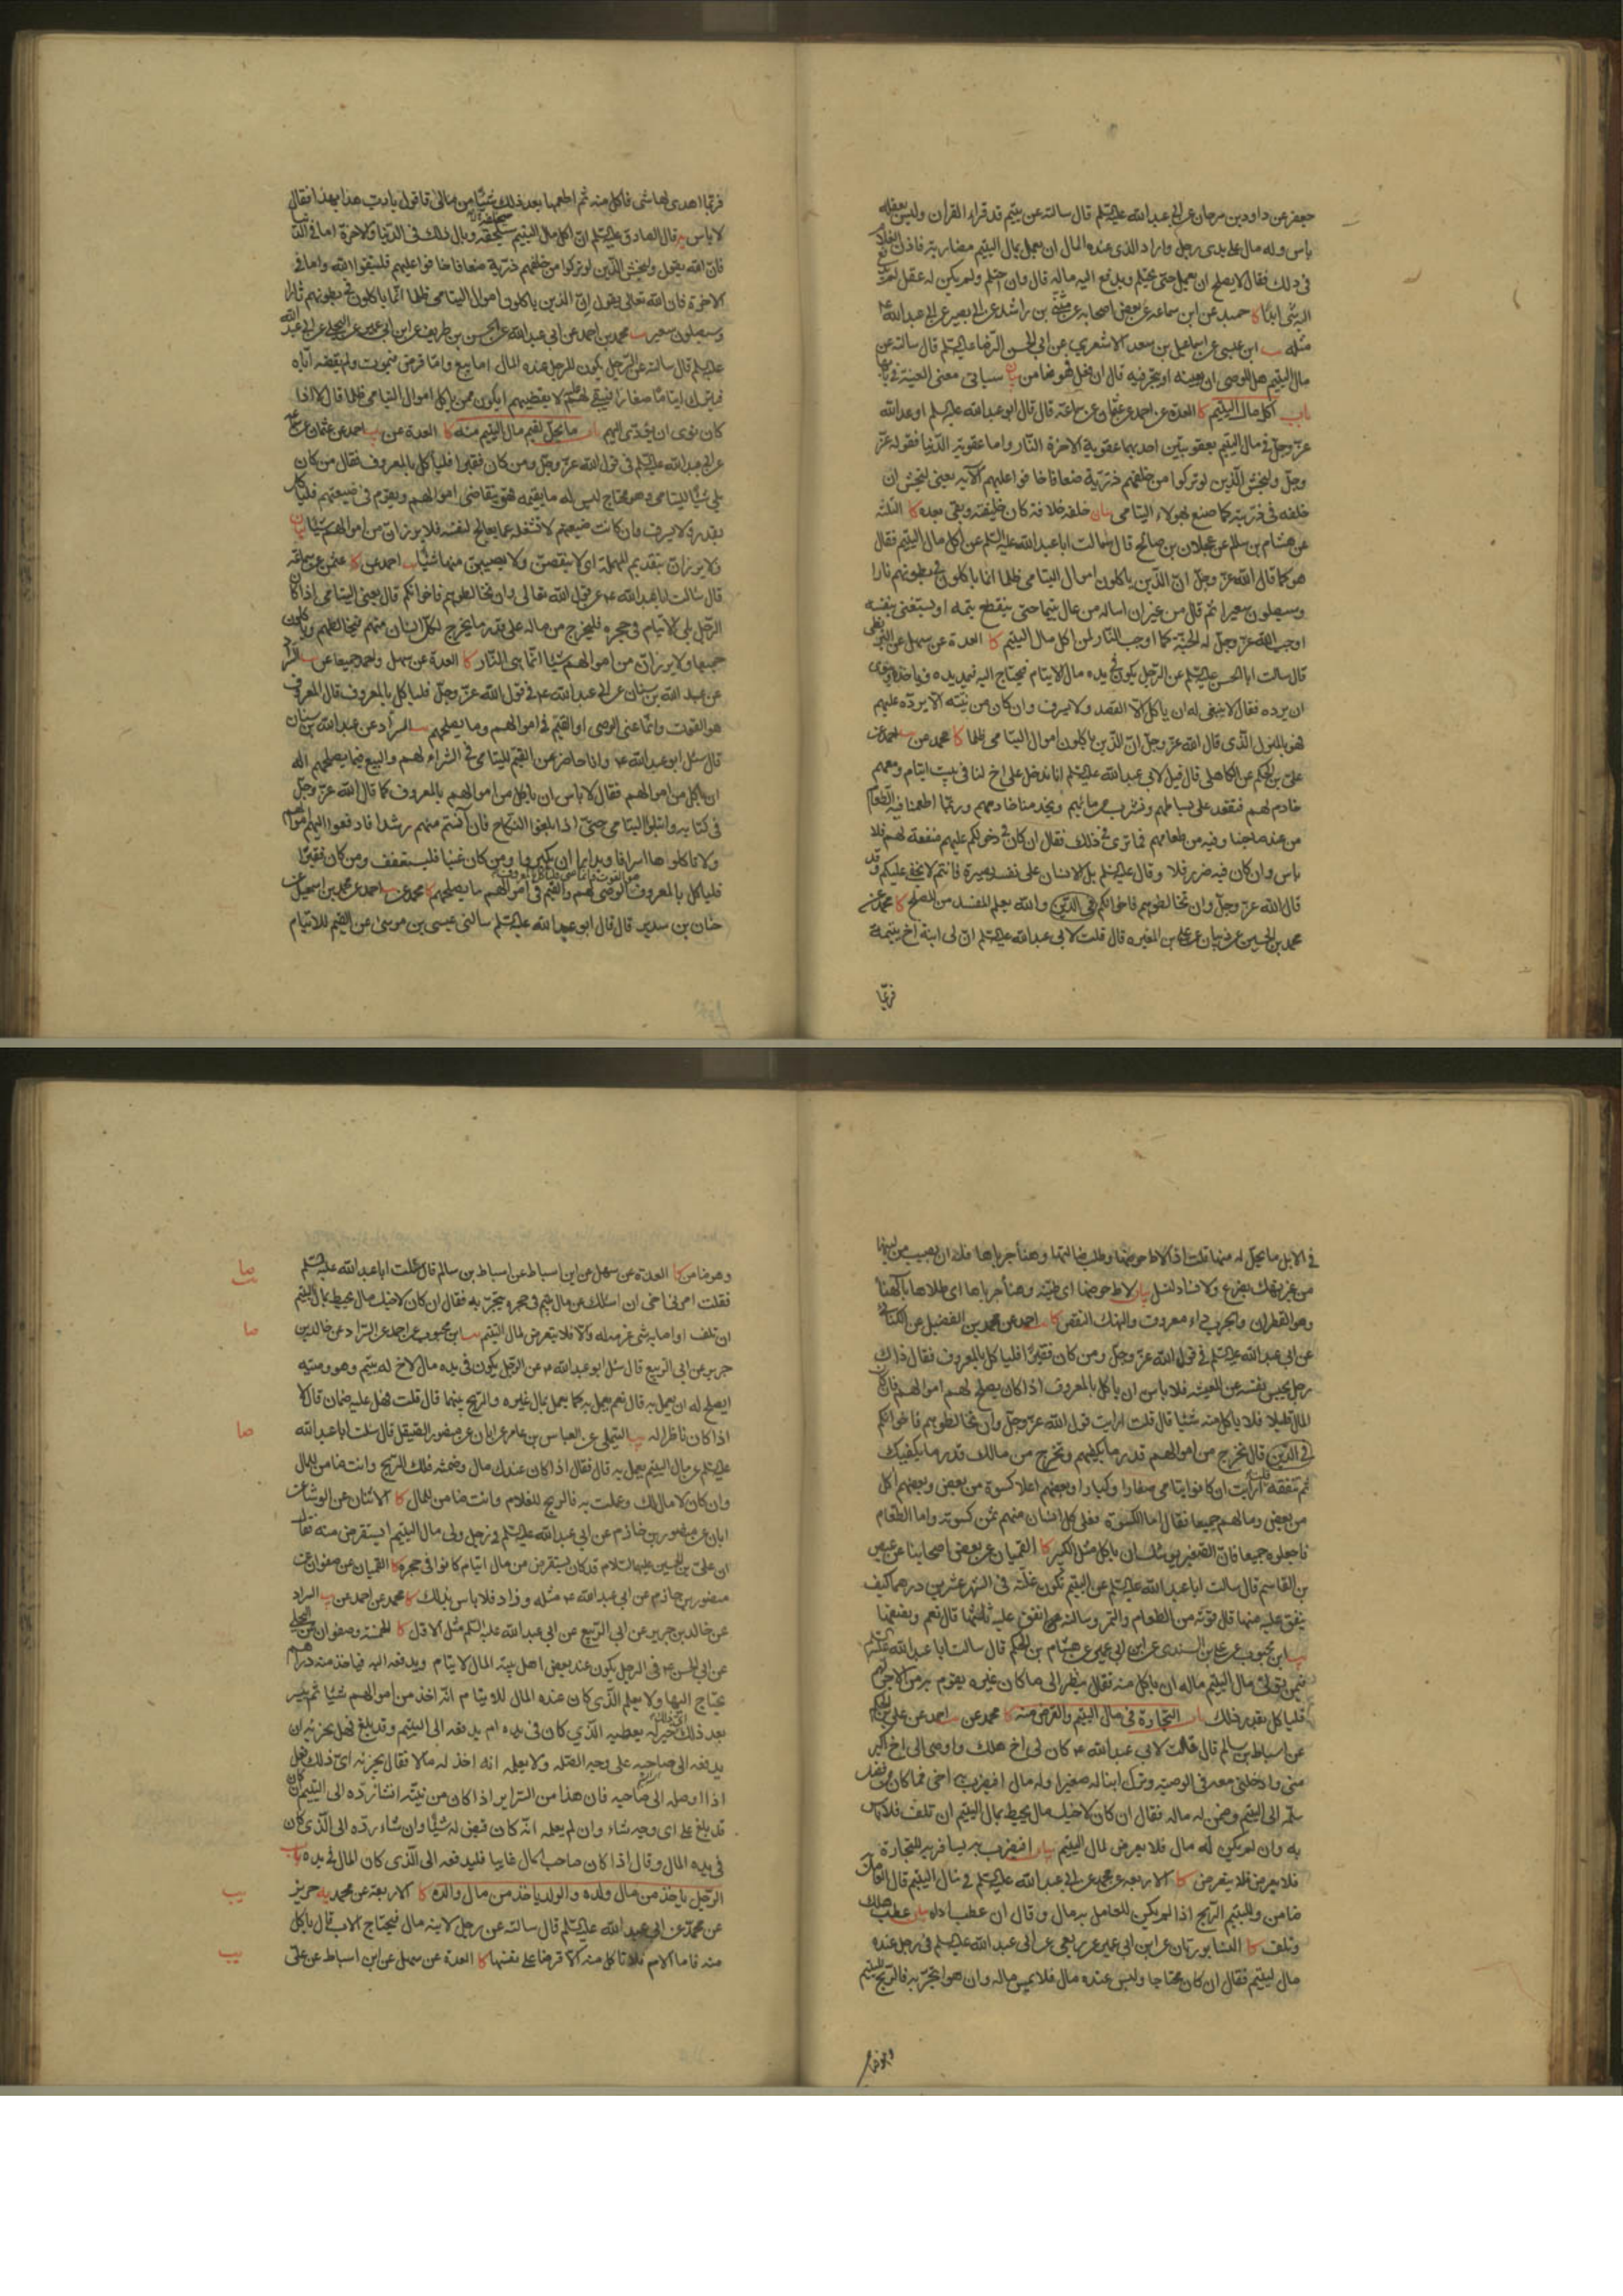 جعفر عن داود بن سرحان عن ابي عبد الله عليه السلم قال سالته عن يتيم قد قراء القران وليس بعقله
باس وله مال على يدى رجل واراد الذى عنده المال ان يعمل بمال اليتيم مضاربة فاذن الغلام
فى ذلك فقال لا يصلح ان يعمل حتى يحتلم ويدفع اليه ماله قال وان احتلم ولم يكن له عقل لم يدفع
اليه شئ ابدا كا حميد عن ابن سماعه عن بعض اصحابه عن مثنى بن راشد عن ابي بصير عن ابي عبد الله ع
مثله يب ابن عيسى عن اسماعيل بن سعد الاشعرى عن ابي الحسن الرضا عليه السلم قال سالته عن
مال اليتيم هل للوصى ان يعينه او يتجر فيه قال ان فعل فهو ضامن بيان سياتى معنى العينة فى بابها
باب اكل مال اليتيم كا العدة عن احمد عن عثمان عن سماعة قال قال ابو عبد الله عليه السلم اوعد الله
عز وجل فى مال اليتيم بعقوبتين احديهما عقوبة الاخرة النار واما عقوبة الدنيا فقوله عز
وجل وليخش الذين لو تركوا من خلفهم ذرية ضعافا خافوا عليهم الاية يعنى ليخش ان
خلفه فى ذريته كما صنع بهؤلاء اليتامى بيان خلفه خلافة كان خليفته وبقى بعده كا الثلثه
عن هشام بن سالم عن عجلان بن صالح قال سالت ابا عبد الله عليه السلم عن اكل مال اليتيم فقال
هو كما قال الله عز وجل ان الذين ياكلون اموال اليتامى ظلما انما ياكلون فى بطونهم نارا
وسيصلون سعيرا ثم قال من غير ان اساله من عال يتيما حتى ينقطع يتمه او يستغنى بنفسه
اوجب الله عز وجل له الجنة كما اوجب النار لمن اكل مال اليتيم كا العدة عن سهل عن البزنطى
قال سالت ابا الحسن عليه السلم عن الرجل يكون فى يده مال لايتام فيحتاج اليه فيمد يده فياخذه وينوى
ان يرده فقال لا ينبغى له ان ياكل الا القصد ولا يسرف وان كان من نيته الا يرده عليهم
فهو بالمنزل الذى قال الله عز وجل ان الذين ياكلون اموال اليتامى ظلما كا محمد عن يب احمد عن
على بن الحكم عن الكاهلى قال قيل لابى عبد الله عليه السلم انا ندخل على اخ لنا فى بيت ايتام ومعهم
خادم لهم فنقعد على بساطهم ونشرب من مائهم ويخدمنا خادمهم وربما اطعمنا فيه الطعام
من عند صاحبنا وفيه من طعامهم فما ترى فى ذلك فقال ان كان فى دخولكم عليهم منفعة لهم فلا
باس وان كان فيه ضرر فلا وقال عليه السلم بل الانسان على نفسه بصيرة فانتم لا يخفى عليكم وقد
قال الله عز وجل وان تخالطوهم فاخوانكم فى الدين والله يعلم المفسد من المصلح كا محمد عن
محمد بن الحسين عن ذبيان عن على بن المغيره قال قلت لابى عبد الله عليه السلم ان لى ابنة اخ يتيمة
فربما
فربما اهدى لها شئ فاكل منه ثم اطعمها بعد ذلك شيئا من مالى فاقول يا رب هذا بهذا فقال
لا باس يه قال الصادق عليه السلم ان اكل مال اليتيم سيلحقه وبال ذلك فى الدنيا والاخرة اما فى الدنيا
فان الله يقول وليخش الذين لو تركوا من خلفهم ذرية ضعافا خافوا عليهم فليتقوا الله واما فى
الاخرة فان الله تعالى يقول ان الذين ياكلون اموال اليتامى ظلما انما ياكلون فى بطونهم نارا
وسيصلون سعيرا يب محمد بن احمد عن ابي عبد الله عن الحسن بن ظريف عن ابن ابى عمير عن البجلى عن ابي عبد الله
عليه السلم قال سالته عن الرجل يكون للرجل عنده المال اما بيع واما قرض فيموت ولم يقضه اياه
فيترك ايتاما صغارا فيبقى لهم عليه لا يقضيهم ايكون ممن ياكل اموال اليتامى ظلما قال لا اذا
كان نوى ان يؤدى اليهم باب ما يحل لقيم مال اليتيم منه كا العدة عن يب احمد عن عثمان عن سماعة
عن ابي عبد الله عليه السلم فى قول الله عز وجل ومن كان فقيرا فلياكل بالمعروف فقال من كان
يلى شيئا لليتامى وهو محتاج ليس له ما يقيمه فهو يتقاضى اموالهم ويقوم فى ضيعتهم فلياكل
بقدر ولا يسرف وان كانت ضيعتهم لا تشغله عما يعالج لنفسه فلا يرزان من اموالهم شيئا بيان
ولا يرزان بتقديم المهملة اى لا ينقصن ولا يصيبن منها شيئا يب احمد عن كا عثمن عن سماعة
قال سالت ابا عبد الله ع عن قول الله تعالى وان تخالطوهم فاخوانكم قال يعنى اليتامى اذا كان
الرجل يلى الايتام فى حجره فليخرج من ماله على قدر ما يخرج لكل انسان منهم فيخالطهم وياكلون
جميعا ولا يرزان من اموالهم شيئا انما هى النار كا العدة عن سهل واحمد جميعا عن يب السراد
عن عبد الله بن سنان عن ابي عبد الله ع فى قول الله عز وجل فلياكل بالمعروف قال المعروف
هو القوت وانما عنى الوصى او القيم فى اموالهم وما يصلحهم يب السراد عن عبد الله بن سنان
قال سئل ابو عبد الله ع وانا حاضر عن القيم لليتامى فى الشراء لهم والبيع فيما يصلحهم اله
ان ياكل من اموالهم فقال لا باس ان ياكل من اموالهم بالمعروف كما قال الله عز وجل
فى كتابه وابتلوا اليتامى حتى اذا بلغوا النكاح فان آنستم منهم رشدا فادفعوا اليهم اموالهم
ولا تاكلوها اسرافا وبدارا ان يكبروا ومن كان غنيا فليستعفف ومن كان فقيرا
فلياكل بالمعروف الوصى لهم والقيم فى اموالهم ما يصلحهم كا محمد عن يب احمد عن محمد بن اسمعيل عن
حنان بن سدير قال قال ابو عبد الله عليه السلم سالنى عيسى بن موسى عن القيم للايتام
فى الابل ما يحل له منها قلت اذا لاط حوضها وطلب ضالتها وهنأ جرباها فله ان يصيب من لبنها
من غير نهك بضرع ولا فساد لنسل بيان لاط حوضها اى طينه وهنأ جرباها اى طلاها بالهنا
وهو القطران والجرب داء معروف والنهك النقص كا يب احمد عن محمد بن الفضيل عن الكنانى
عن ابى عبد الله عليه السلم فى قول الله عز وجل ومن كان فقيرا فلياكل بالمعروف فقال ذلك
رجل يحبس نفسه عن المعيشه فلا باس ان ياكل بالمعروف اذا كان يصلح لهم اموالهم فان كان
المال قليلا فلا ياكل منه شيئا قال قلت ارايت قول الله عز وجل وان تخالطوهم فاخوانكم
فى الدين قال تخرج من اموالهم قدر ما يكفيهم وتخرج من مالك قدر ما يكفيك
ثم تنفقه قلت ارايت ان كانوا يتامى صغارا وكبارا وبعضهم اعلا كسوة من بعض وبعضهم اكل
من بعض ومالهم جميعا فقال اما الكسوة فعلى كل انسان منهم ثمن كسوته واما الطعام
فاجعلوه جميعا فان الصغير يوشك ان ياكل مثل الكبير كا القميان عن بعض اصحابنا عن عيص
بن القاسم قال سالت ابا عبد الله عليه السلم عن اليتيم تكون غلته فى الشهر عشرين درهما كيف
ينفق عليه منها قال قوته من الطعام والتمر وسالته انفق عليه ثلثها قال نعم ونصفها
يب ابن محبوب عن على بن السندى عن ابن ابى عمير عن هشام بن الحكم قال سالت ابا عبد الله عليه السلم
فيمن تولى مال اليتيم ماله ان ياكل منه فقال ينظر الى ما كان غيره يقوم به من الاجر لهم
فلياكل بقدر ذلك باب التجارة فى مال اليتيم والقرض منه كا محمد عن يب احمد عن على بن الحكم
عن اسباط بن سالم قال قلت لابى عبد الله ع كان لى اخ هلك واوصى الى اخ اكبر
منى وادخلنى معه فى الوصية وترك ابنا له صغيرا وله مال افيضرب به اخى فما كان من فضل
سلمه الى اليتيم وضمن له ماله فقال ان كان لاخيك مال يحيط بمال اليتيم ان تلف فلا باس
به وان لم يكن له مال فلا يعرض لمال اليتيم بيان افيضرب به يسافر به للتجارة
فلا يعرض فلا يتعرض كا الاربعه عن محمد عن ابى عبد الله عليه السلم فى مال اليتيم قال العامل
ضامن ولليتيم الربح اذا لم يكن للعامل به مال وقال ان عطب اداه بيان عطب هلك
وتلف كا النيسابوريان عن ابن ابى عمير عن ربعى عن ابى عبد الله عليه السلم فى رجل عنده
مال ليتيم فقال ان كان محتاجا وليس عنده مال فلا يمس ماله وان هو اتجر به فالربح لليتيم
وهو ضامن
وهو ضامن كا العدة عن سهل عن ابن اسباط عن اسباط بن سالم قال سالت ابا عبد الله عليه السلم
فقلت امرنى اخى ان اسالك عن مال يتيم فى حجره يتجر به فقال ان كان لاخيك مال يحيط بمال اليتيم
ان تلف او اصابه شئ غرمه له والا فلا يتعرض لمال اليتيم يب ابن محبوب عن احمد عن السراد عن خالد بن
جرير عن ابى الربيع قال سئل ابو عبد الله ع عن الرجل يكون فى يده مال لاخ له يتيم وهو وصيه
ايصلح له ان يعمل به قال نعم يعمل به كما يعمل بمال غيره والربح بينهما قال قلت فهل عليه ضمان قال لا
اذا كان ناظرا له يب التيملى عن العباس بن عامر عن ابان عن منصور الصيقل قال سالت ابا عبد الله
عليه السلم عن مال اليتيم يعمل به قال فقال اذا كان عندك مال وضمنته فلك الربح وانت ضامن للمال
وان كان لا مال لك وعملت به فالربح للغلام وانت ضامن للمال كا الاثنان عن الوشاء عن
ابان عن منصور بن حازم عن ابى عبد الله عليه السلم فى رجل ولى مال اليتيم ايستقرض منه فقال
ان على بن الحسين عليهما السلام قد كان يستقرض من مال ايتام كانوا فى حجره كا القميان عن صفوان عن
منصور بن حازم عن ابى عبد الله ع مثله وزاد فلا باس بذلك كا محمد عن احمد عن يب السراد
عن خالد بن جرير عن ابى الربيع عن ابى عبد الله عليه السلم مثل الاول كا الخمسة وصفوان عن البجلى
عن ابى الحسن ع فى الرجل يكون عند بعض اهل بيته المال لايتام ويدفعه اليه فياخذ منه دراهم
يحتاج اليها ولا يعلم الذى كان عنده المال للايتام انه اخذ من اموالهم شيئا ثم ييسر
بعد ذلك اى ذلك خير له يعطيه الذى كان فى يده ام يدفعه الى اليتيم وقد بلغ وهل يجزئه ان
يدفعه الى صاحبه على وجه الصلة ولا يعلمه انه اخذ له مالا فقال يجزئه اى ذلك فعل
اذا اوصله الى صاحبه فان هذا من السرائر اذا كان من نيته ان شاء رده الى اليتيم ان كان
قد بلغ على اى وجه شاء وان لم يعلمه انه كان قبض له شيئا وان شاء رده الى الذى كان
فى يده المال وقال اذا كان صاحب المال غايبا فليدفعه الى الذى كان المال فى يده باب
الرجل ياخذ من مال ولده والولد ياخذ من مال والده كا الاربعة عن محمد يه حريز
عن محمد عن ابى عبد الله عليه السلم قال سالته عن رجل لابنه مال فيحتاج الاب قال ياكل
منه فاما الام فلا تاكل منه الا قرضا على نفسها كا العدة عن سهل عن ابن اسباط عن على
صا
يب
صا
صا
يب
يب